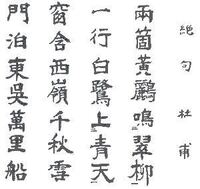 絶句 杜甫
兩箇黃鸝鳴翠柳
一行白鷺上青天
窗含西嶺千秋雪
門泊東吳萬里船